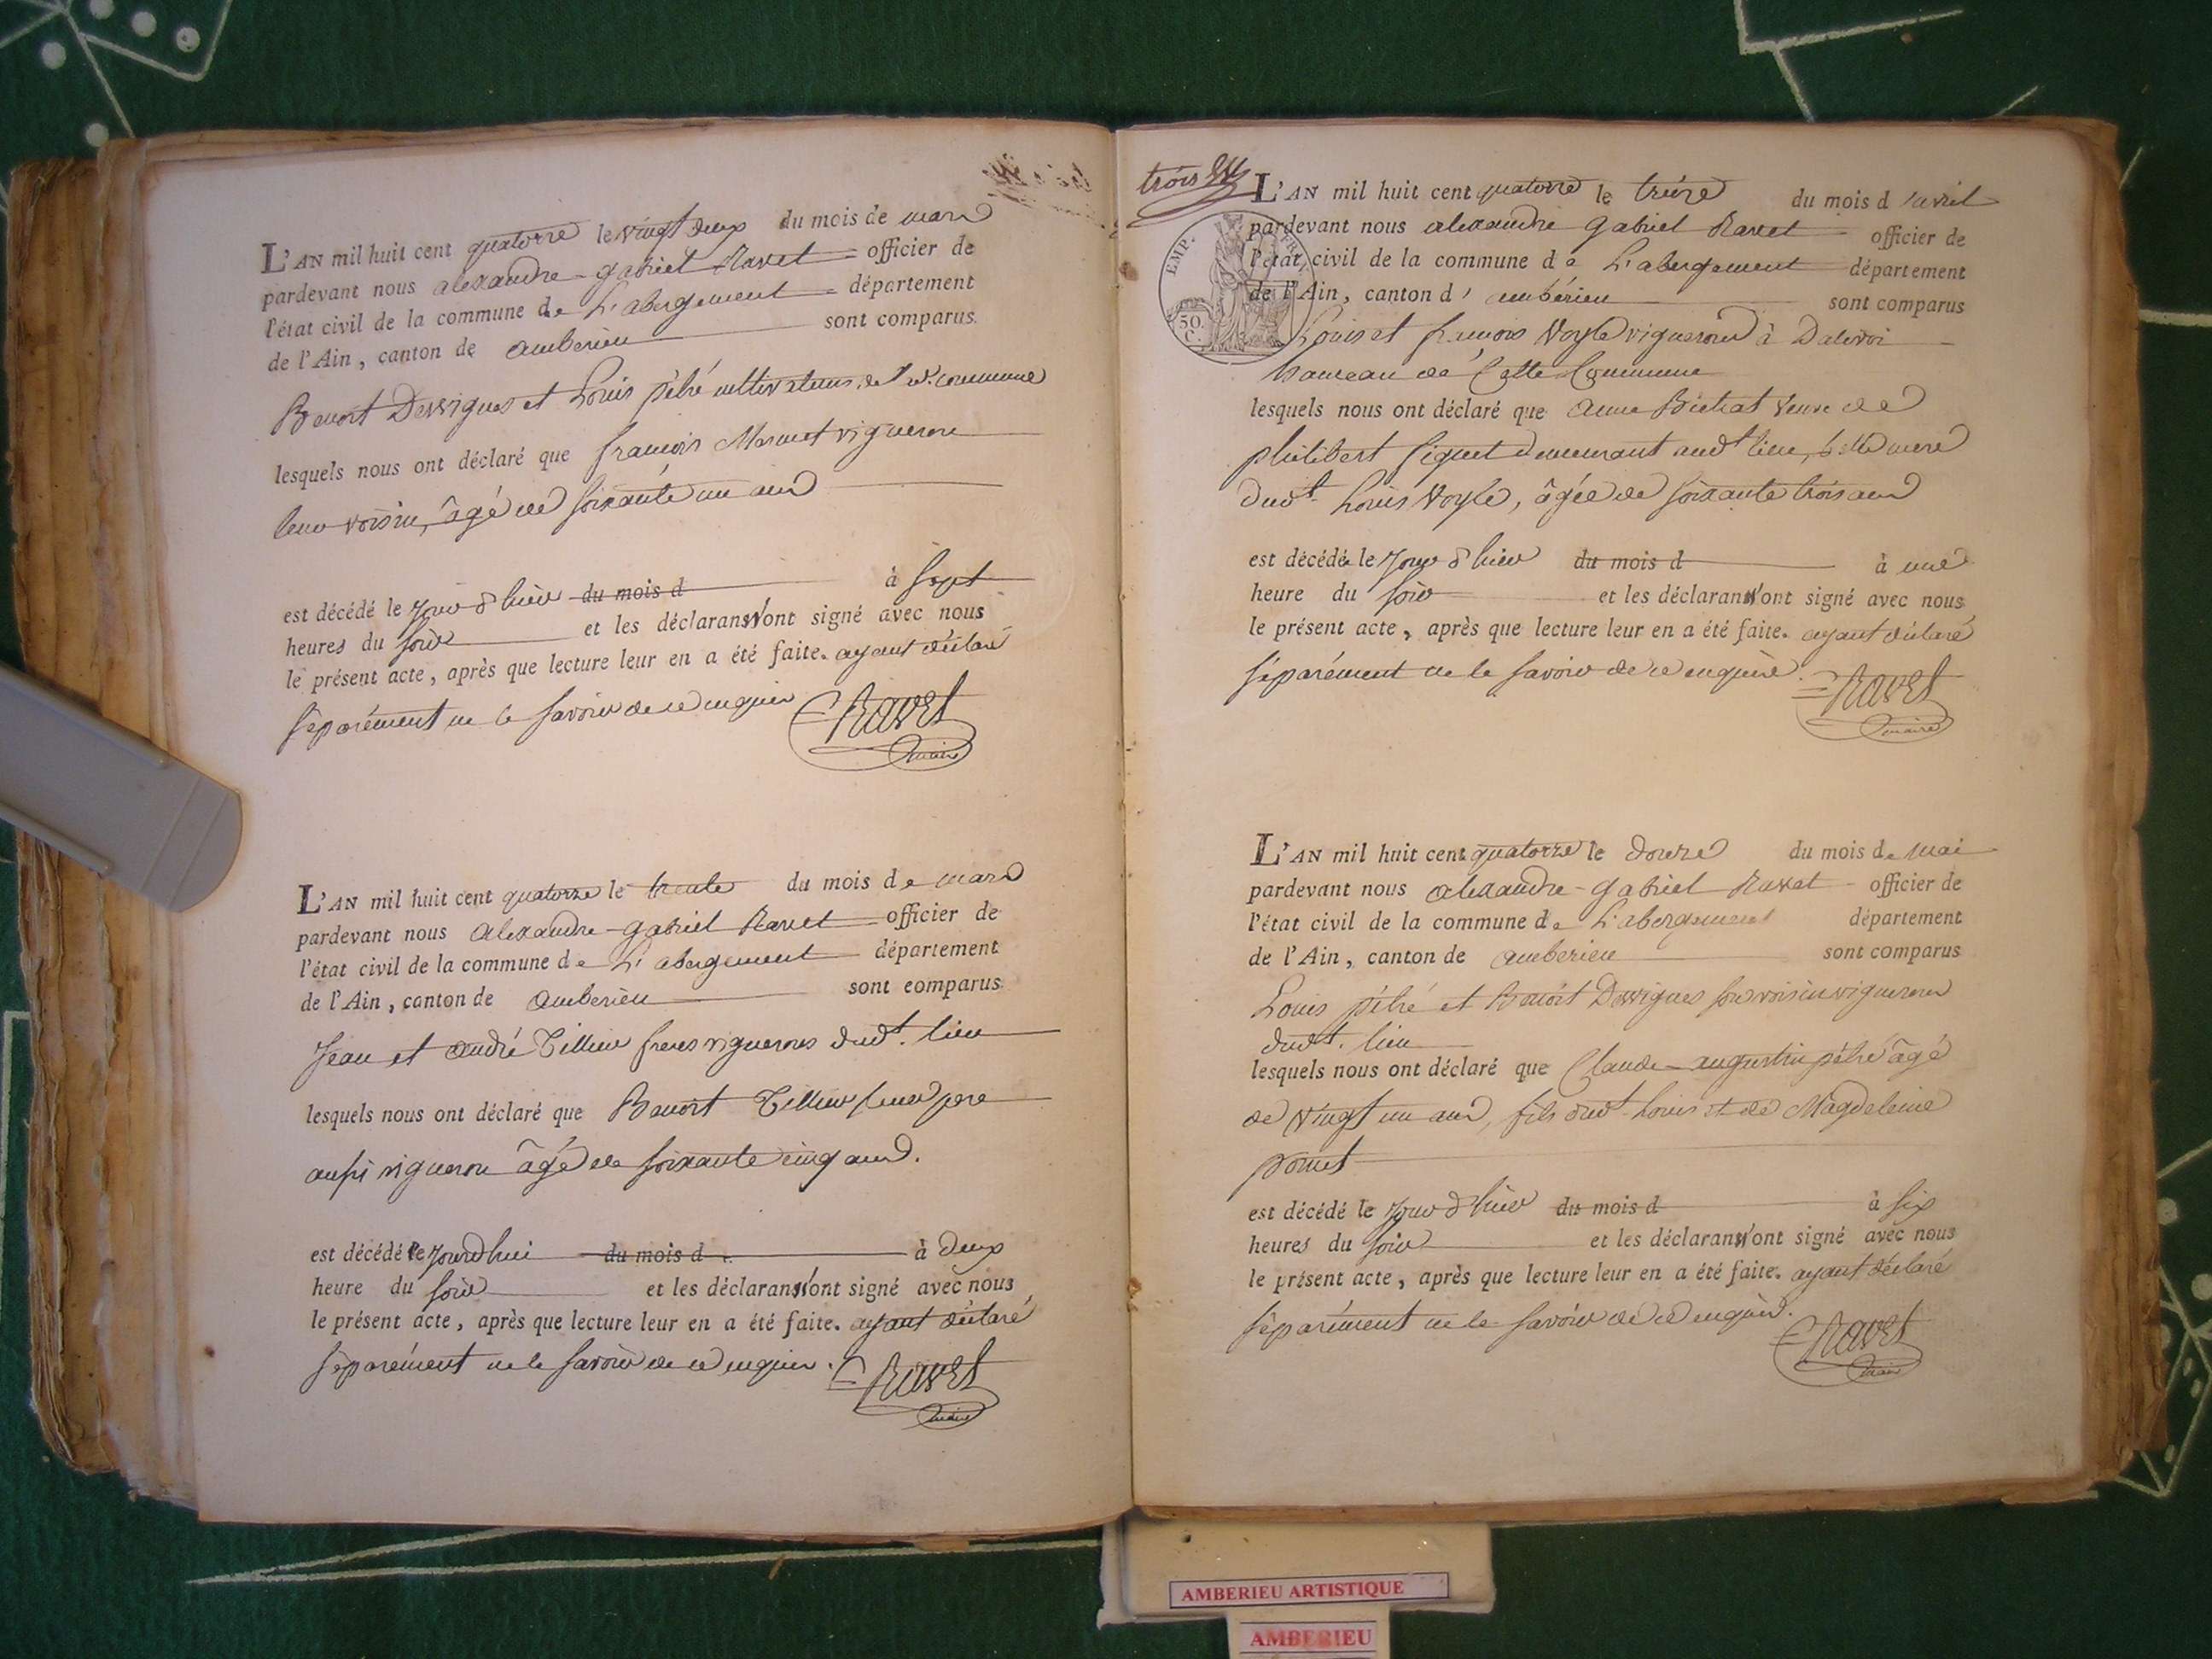 L'AN mil huit cent quatorze le vingt deux du mois de mars
pardevant nous alexandre-gabriel Ravet officier de
l'état civil de la commune de L'abergement département
de l'Ain, canton de amberieu sont comparus
Benoit Dessignes et Louis pétré cultivateurs de lad. commune
lesquels nous ont déclaré que francois vigneron
leur voisin, âgé de soixante un ans
est décédé le jour d'hier du mois d à sept
heures du soir et les déclarans n'ont signé avec nous
le présent acte, après que lecture leur en a été faite. ayant déclaré
séparément ne le savoir de ce enquis
Ravet
maire
L'AN mil huit cent quatorze le trente du mois de mars
pardevant nous alexandre-gabriel Ravet officier de
l'état civil de la commune de L'abergement département
de l'Ain, canton de amberieu sont comparus
Jean et andré Tillier freres vignerons dud.t lieu
lesquels nous ont déclaré que Benoit Tillier leur pere
aussi vigneron âgé de soixante cinq ans.
est décédé le jourd'hui du mois d à deux
heure du soir et les déclarans n'ont signé avec nous
le présent acte, après que lecture leur en a été faite. ayant déclaré
séparément ne le savoir de ce enquis.
Ravet
maire
trois
L'AN mil huit cent quatorze le treize du mois d'avril
pardevant nous alexandre gabriel Ravet officier de
l'état civil de la commune de L'abergement département
de l'Ain, canton d'ambérieu sont comparus
EMP. FR.
50.
C.
Louis et francois Voyle vignerons à Dalivoi
hameau de Cette Commune
lesquels nous ont déclaré que anne Bichat veuve de
philibert demeurant aud.t lieu, belle mere
dud.t Louis Voyle, âgée de soixante trois ans
est décédée le jour d'hier du mois d à une
heure du soir et les déclarans n'ont signé avec nous
le présent acte, après que lecture leur en a été faite. ayant déclaré
séparément ne le savoir de ce enquis.
Ravet
maire
L'AN mil huit cent quatorze le douze du mois de mai
pardevant nous alexandre-gabriel Ravet officier de
l'état civil de la commune de L'abergement département
de l'Ain, canton de amberieu sont comparus
Louis pétré et Benoit Dessignes son voisin vignerons
dud.t lieu
lesquels nous ont déclaré que Claude-augustin pétré âgé
de vingt un ans, fils dud.t Louis et de Magdeleine
ponet
est décédé le jour d'hier du mois d à six
heures du soir et les déclarans n'ont signé avec nous
le présent acte, après que lecture leur en a été faite. ayant déclaré
séparément ne le savoir de ce enquis.
Ravet
maire
AMBERIEU ARTISTIQUE
AMBERIEU